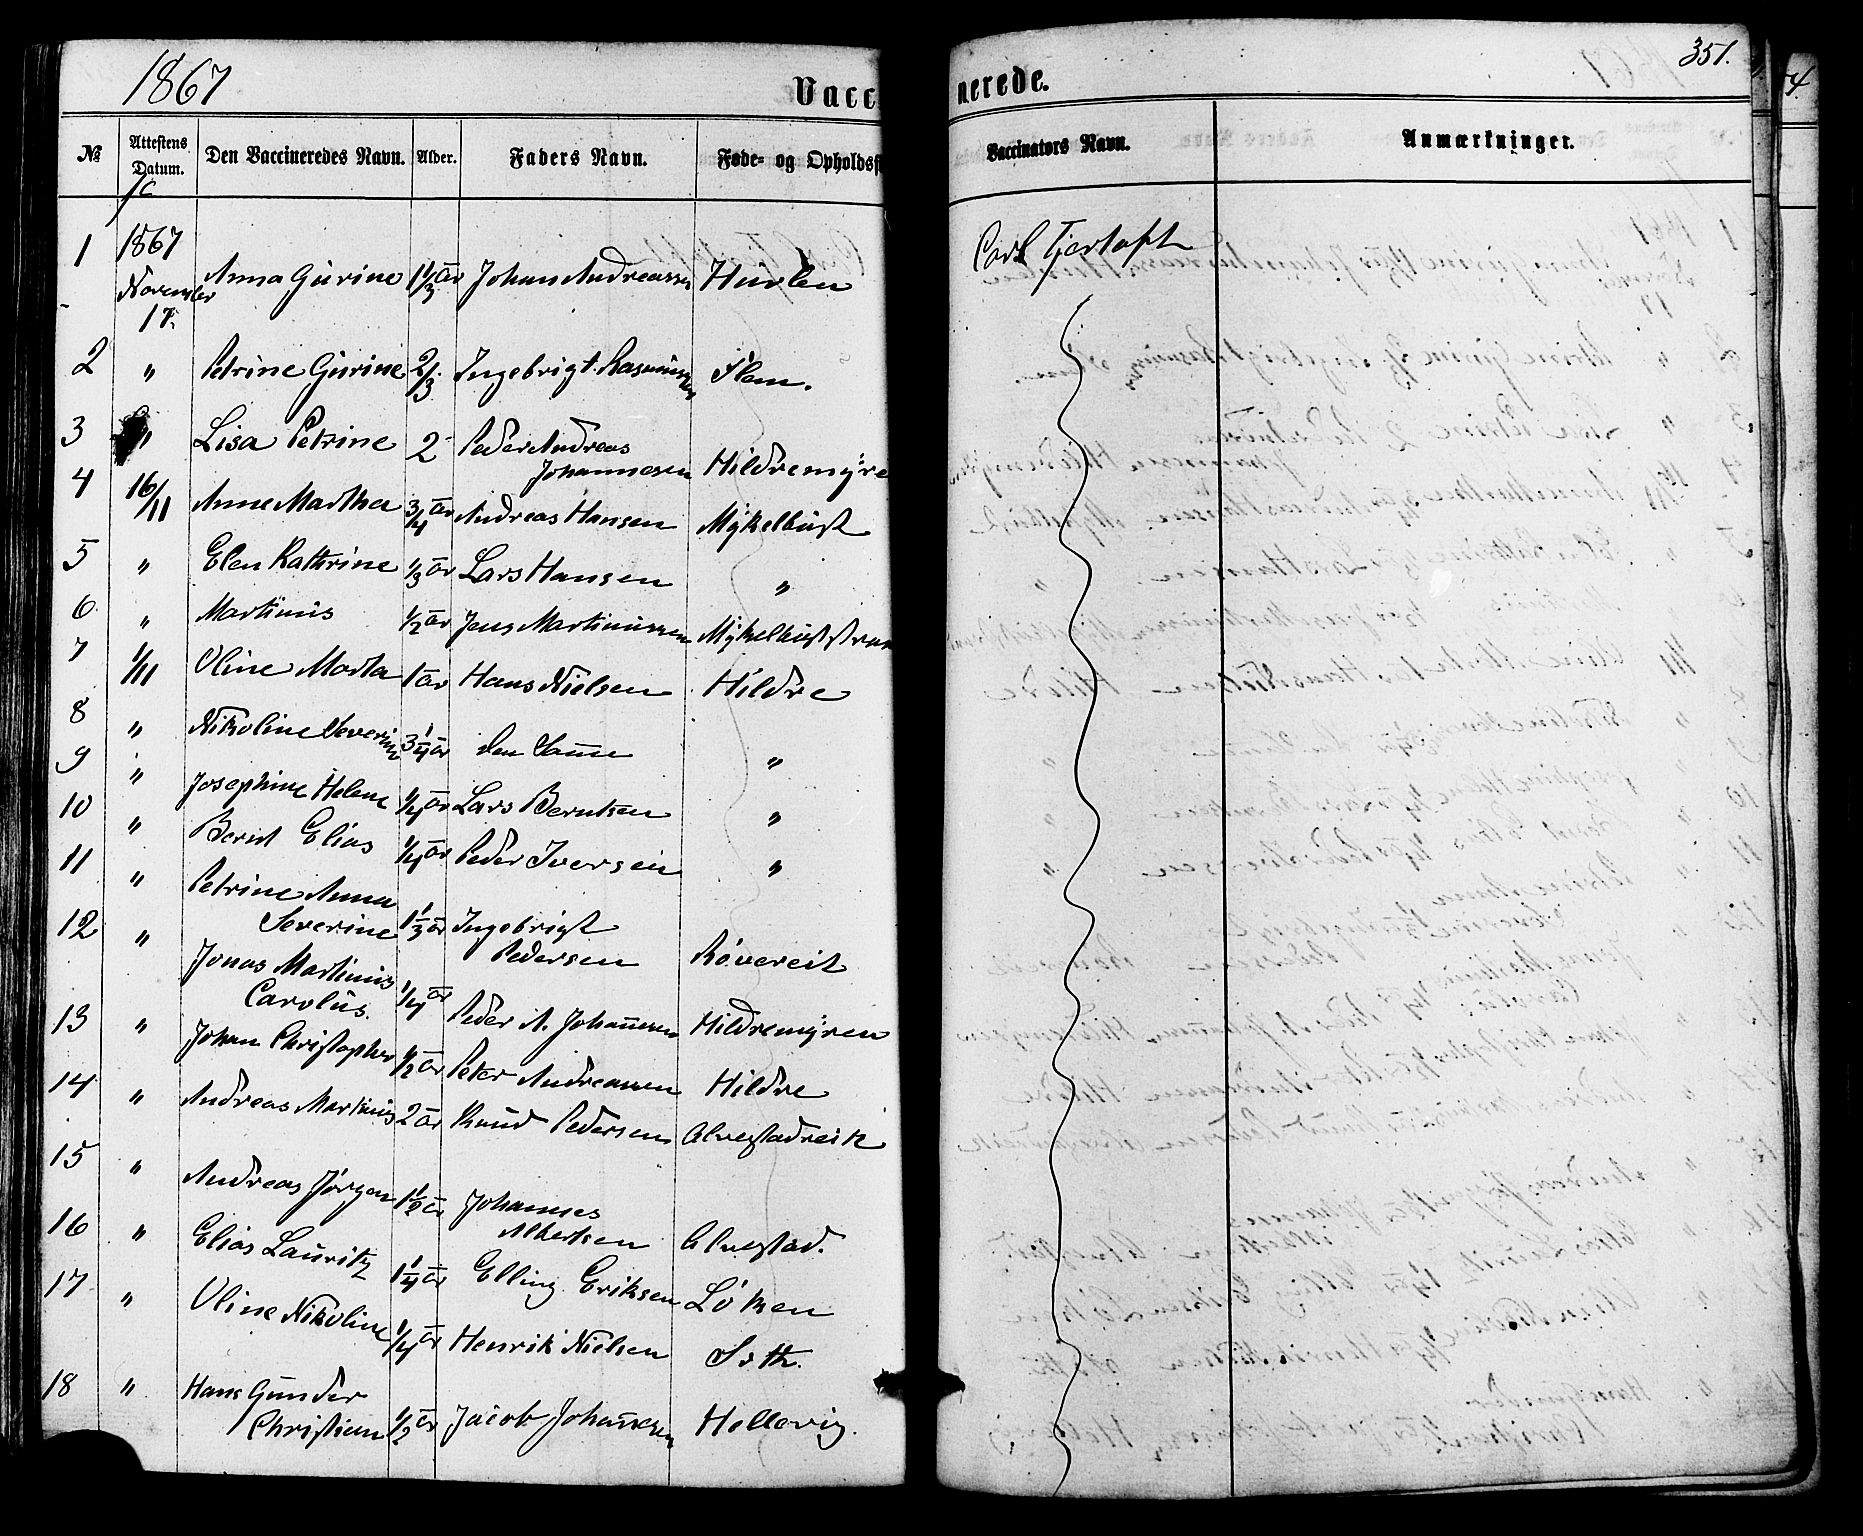 1867
Vacc
nerede.
351.
4.
№ Attestens Datum. Den Vaccineredes Navn. Alder. Faders Navn. Føde- og Opholdsst
Vaccinators Navn. Anmærkninger.
1 1867 November 17. Anna Gurine 1 1/3 år Johan Andreassen Hurlen Carl Tjertoft
2 " Petrine Gurine 2/3 Ingebrigt Rasmussen Flem.
3 " Lisa Petrine 2 Peder Andreas
Johannesen Hildremÿre
4 16/11 Anne Marthea 3/4 år Andreas Hansen Mÿkelbust
5 " Elen Kathrine 1/3 år Lars Hansen "
6 " Martinus 1/2 år Jens Martinussen Mÿkelbuststran
7 1/11 Oline Marta 1 år Hans Nielsen Hildre
8 " Nikoline Severine 3 1/4 år den Samme "
9 " Josephine Helene 1/4 år Lars Berntsen "
10 " Bernt Elias 1/4 år Peder Iversen "
11 " Petrine Anna
Severine 1 1/3 år Ingebrigt
Pedersen Røvereit
12 " Jonas Martinus
Carolus. 1/4 år Peder A. Johannesen Hildremÿren
13 " Johan Christopher 1/2 år Peter Andreassen Hildre
14 " Andreas Martinus 2 år Knud Pedersen Alvestadreit
15 " Andreas Jørgen 1 1/2 år Johannes
Albertsen Alvestad.
16 " Elias Lauritz 1 1/4 år Elling Eriksen Løken
17 " Oline Nikoline 1/4 år Henrik Nielsen
18 " Hans Gunder
Christian 1/2 år Jacob Johannesen Hellevig.